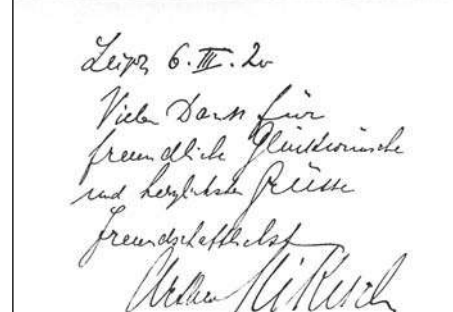 Leipz 6. III. 20
Vielen Dank für
freundliche Glückwünsche
und herzlichste Grüsse
freundschaftlichst
Arthur Nikisch